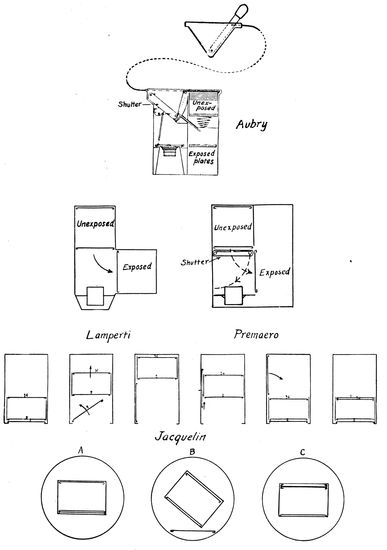 Shutter
Unex-
posed
Exposed
plates
Aubry
Unexposed
Exposed
Unexposed
Shutter
Exposed
Lamperti
Premaero
Jacquelin
A
B
C